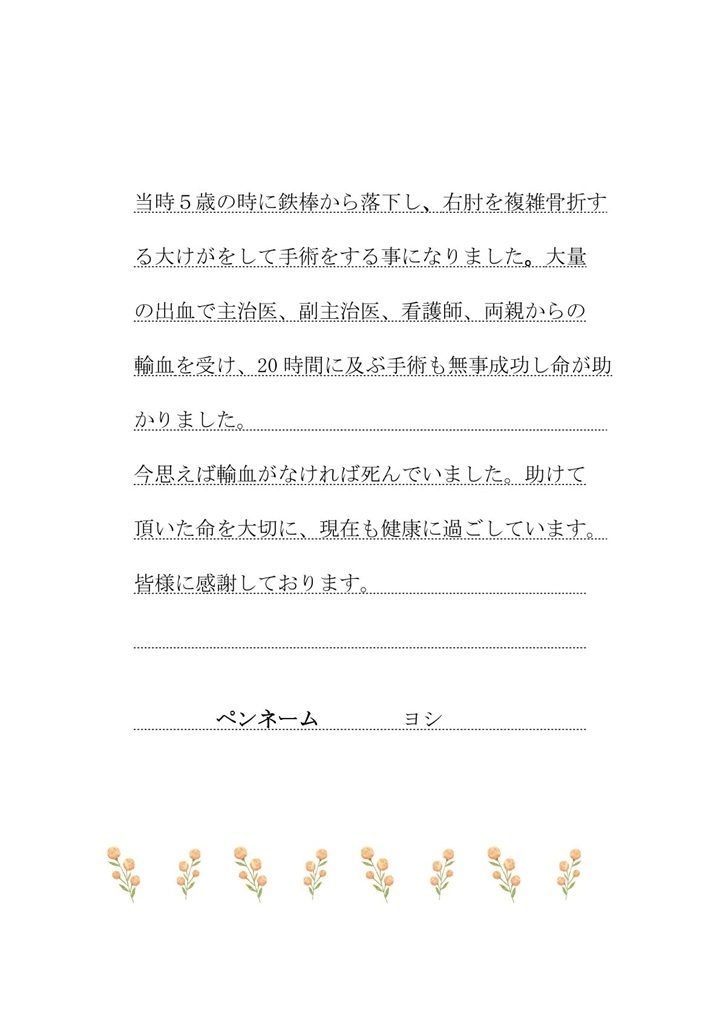 当時５歳の時に鉄棒から落下し、右肘を複雑骨折す
る大けがをして手術をする事になりました。大量
の出血で主治医、副主治医、看護師、両親からの
輸血を受け、20 時間に及ぶ手術も無事成功し命が助
かりました。
今思えば輸血がなければ死んでいました。助けて
頂いた命を大切に、現在も健康に過ごしています。
皆様に感謝しております。
ペンネーム　　　　ヨシ